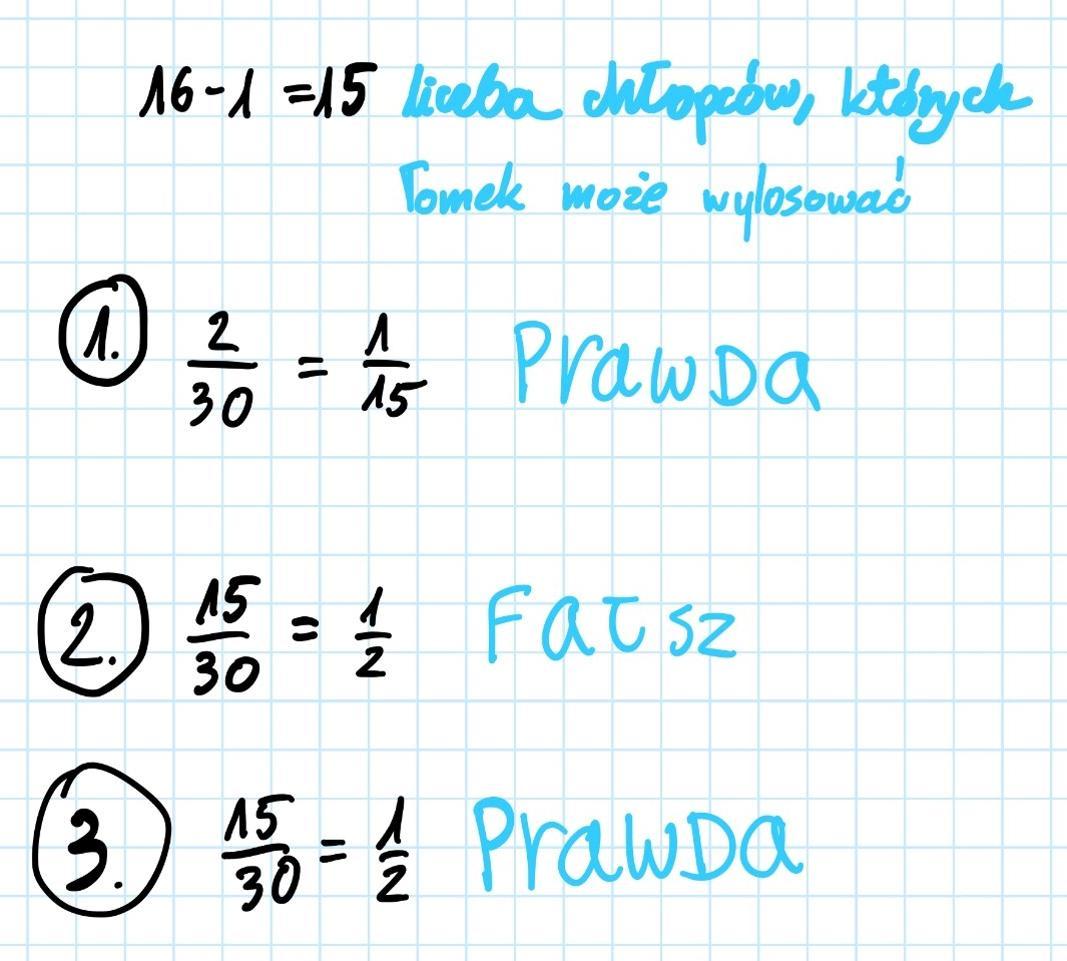 16-1 =15 liczba chłopców, których
Tomek może wylosować
1. 2/30 = 1/15 Prawda
2. 15/30 = 1/2 Fałsz
3. 15/30 = 1/2 Prawda